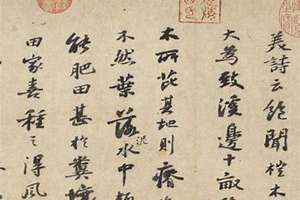 美詩云飽聞榿木
大為致溪邊十畝
木所芘其地則瘠
不然葉落泥水中
能肥田甚於糞壤
田家喜種之得風